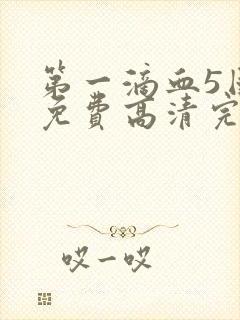 第一滴血5
免费高清完
哎一哎